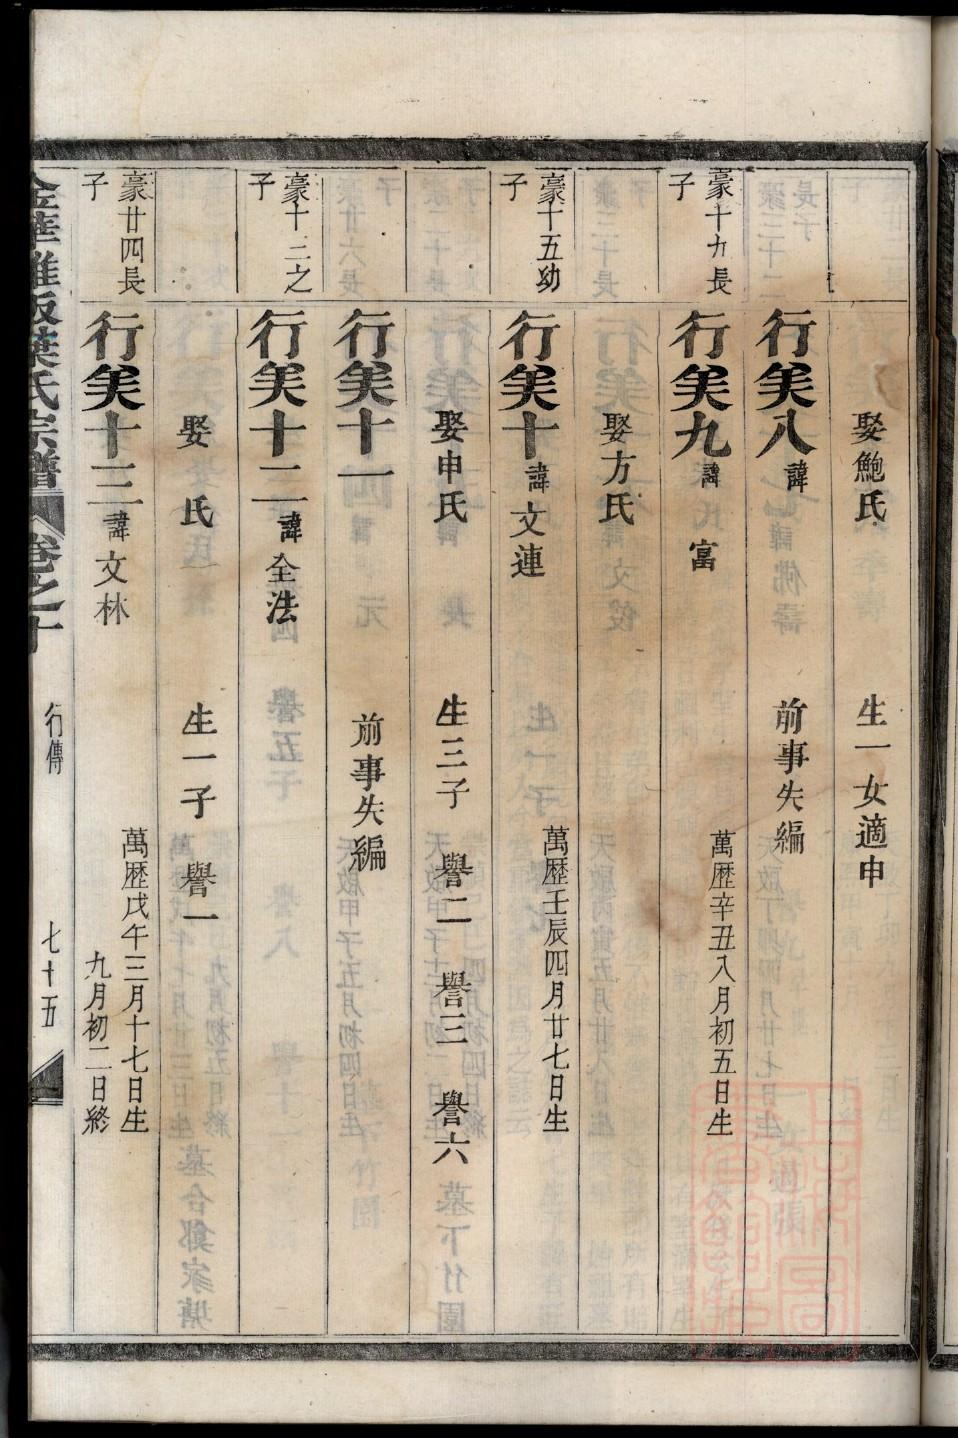 娶鮑氏 生一女適申
行美八 諱 前事失編
豪十九長子
行美九 諱 富 萬歷辛丑八月初五日生
娶方氏
豪十五幼子
行美十 諱文連 萬歷壬辰四月廿七日生
娶申氏 生三子 譽二 譽三 譽六 墓下竹園
行美十一 前事失編
豪十三之子
行美十二 諱全法
娶 氏 生一子 譽一
豪廿四長子
行美十三 諱文林 萬歷戊午三月十七日生
九月初二日終
葉氏宗譜 卷之十 行傳 七十五